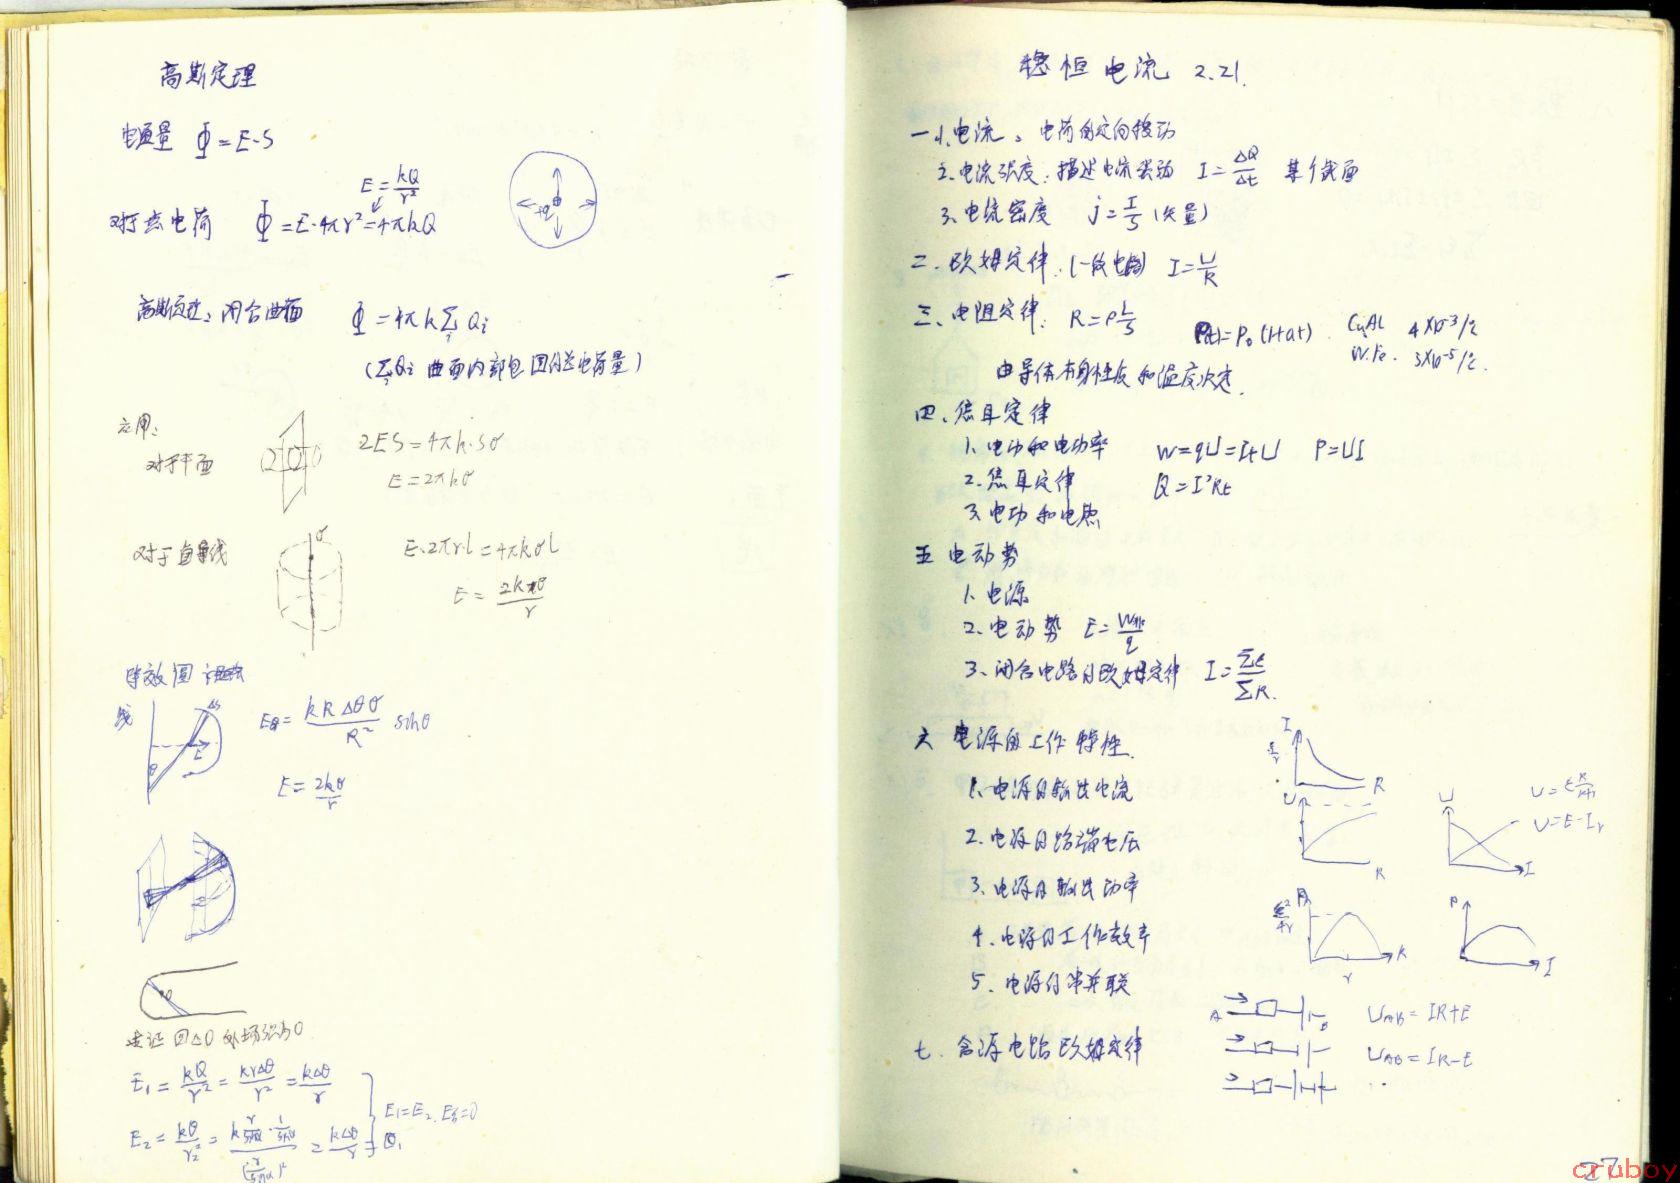 高斯定理
电通量 Φ=E·S
E=kQ/r²
对于点电荷 Φ=E·4πr²=4πkQ
+Q
高斯定理：闭合曲面 Φ=4πk∑Qi
(∑Qi 曲面内部包围的总电荷量)
应用：
对于平面 2ES=4πk·Sσ
E=2πkσ
对于直导线 σ E·2πrl=4πkσl
E=2kσ/r
等效圆
线 Eθ=kRΔθσ/R² sinθ
E=2kσ/r
求证 O处场强为0
E₁=kQ/r²=krΔθ/r²=kΔθ/r
E₁=E₂, E总=0
稳恒电流 2.21.
一、1、电流：电荷的定向移动
2、电流强度：描述电流强弱 I=ΔQ/Δt 某个截面
3、电流密度 j=I/S (矢量)
二、欧姆定律：(一段电阻) I=U/R
三、电阻定律： R=ρL/S ρ(t)=ρ₀(1+αt) Cu,Al 4×10⁻³/℃
W.Fe. 3×10⁻⁵/℃.
由导体本身性质和温度决定.
四、焦耳定律
1、电功和电功率 W=qU=ItU P=UI
2、焦耳定律 Q=I²Rt
3、电功和电热
五 电动势
1、电源
2、电动势 E=W非/q
3、闭合电路的欧姆定律 I=∑ε/∑R.
六 电源的工作特性.
1、电源的输出电流
I
R
2、电源的路端电压
U
R
U
I
U=E-Ir
3、电源的输出功率
4、电源的工作效率
R
r
P
I
5、电源的串并联
七、含源电路欧姆定律
A B UAB=IR+E
UAB=IR-E
27
cruboy